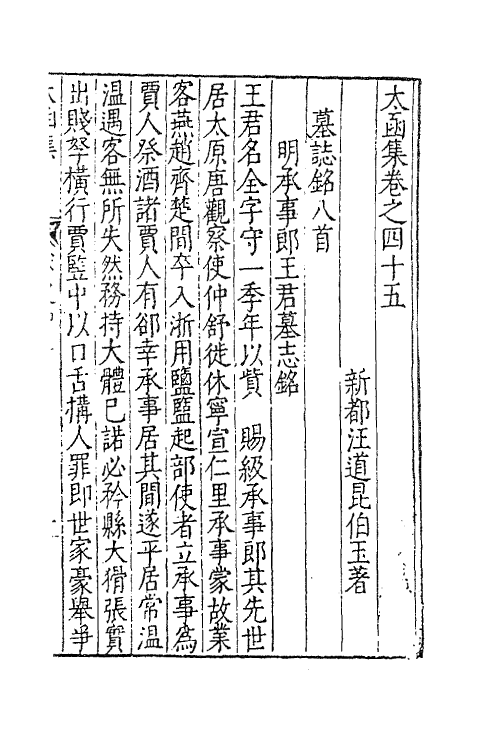 太函集卷之四十五
新都汪道昆伯玉著
墓誌銘八首
明承事郎王君墓志銘
王君名全字守一季年以貲　賜級承事郎其先世
居太原唐觀察使仲舒徙休寧宣仁里承事蒙故業
客燕趙齊楚間卒入浙用鹽鹽起部使者立承事爲
賈人祭酒諸賈人有郤幸承事居其間遂平居常溫
溫遇客無所失然務持大體已諾必矜縣大猾張賓
出賤孥橫行賈監中以口舌構人罪即世家豪舉爭